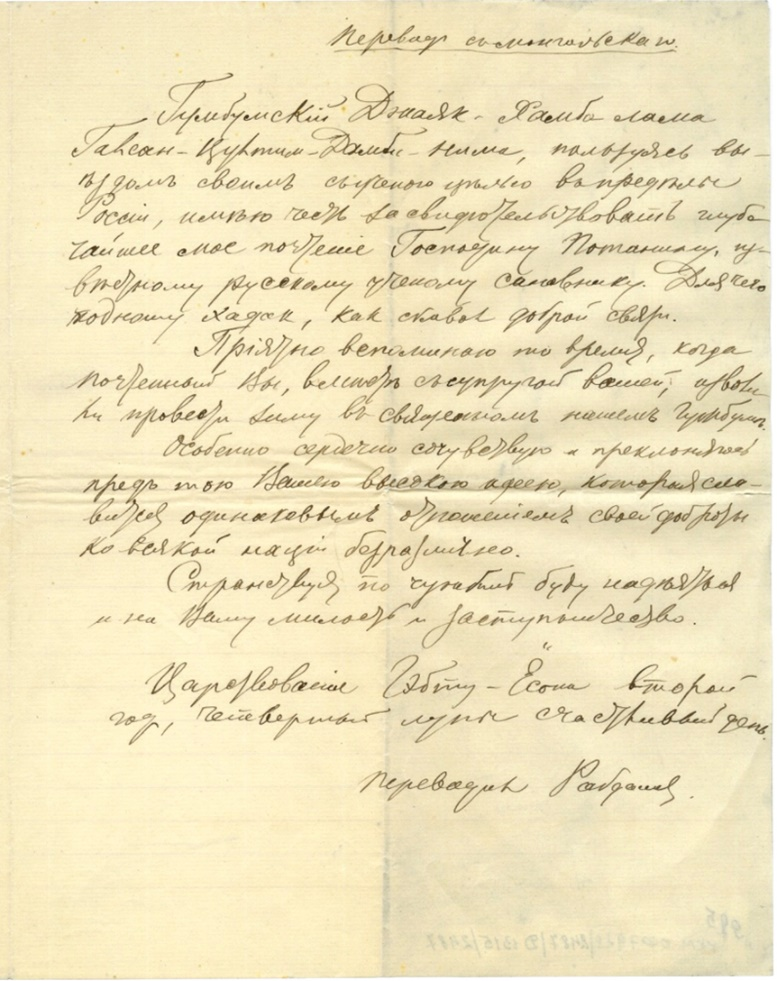 Переводъ съ монгольскаго.
Гумбумскій Джаяк-Хамба лама
Гавсан-Цултим-Дамби-нима, пользуясь вы-
ѣздомъ своимъ съ ученою цѣлью въ предѣлы
Россіи, имѣю честь засвидѣтельствовать глубо
чайшее мое почтеніе Господину Потанину, из-
вѣстному русскому ученому сановнику. Для чего
подношу хадак, как символ доброй связи.
Пріятно вспоминаю то время, когда
почтенный Вы, вмѣстѣ съ супругой вашей, изволи
ли провести зиму въ священномъ нашемъ Гумбумѣ.
Особенно сердечно сочувствую и преклоняюсь
предъ тою Вашею высокою идеею, которая сла-
вится одинаковымъ отношеніемъ своей доброты
ко всякой націи безразлично.
Странствуя по чужбинѣ буду надѣяться
и на Вашу милость и заступничество.
Царствованія Гэбту-Ёсона второй
год, четвертый луны счастливый день.
переводилъ Рабданов.